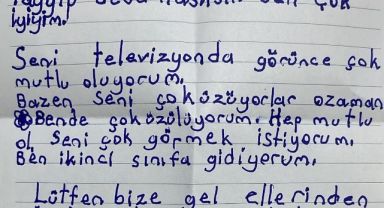 iyiyim.
Seni televizyonda görünce çok
mutlu oluyorum.
Bazen seni çok üzüyorlar ozaman
Bende çok üzülüyorum. Hep mutlu
ol seni çok görmek istiyorum.
Ben ikinci sınıfa gidiyorum.
Lütfen bize gel ellerinden